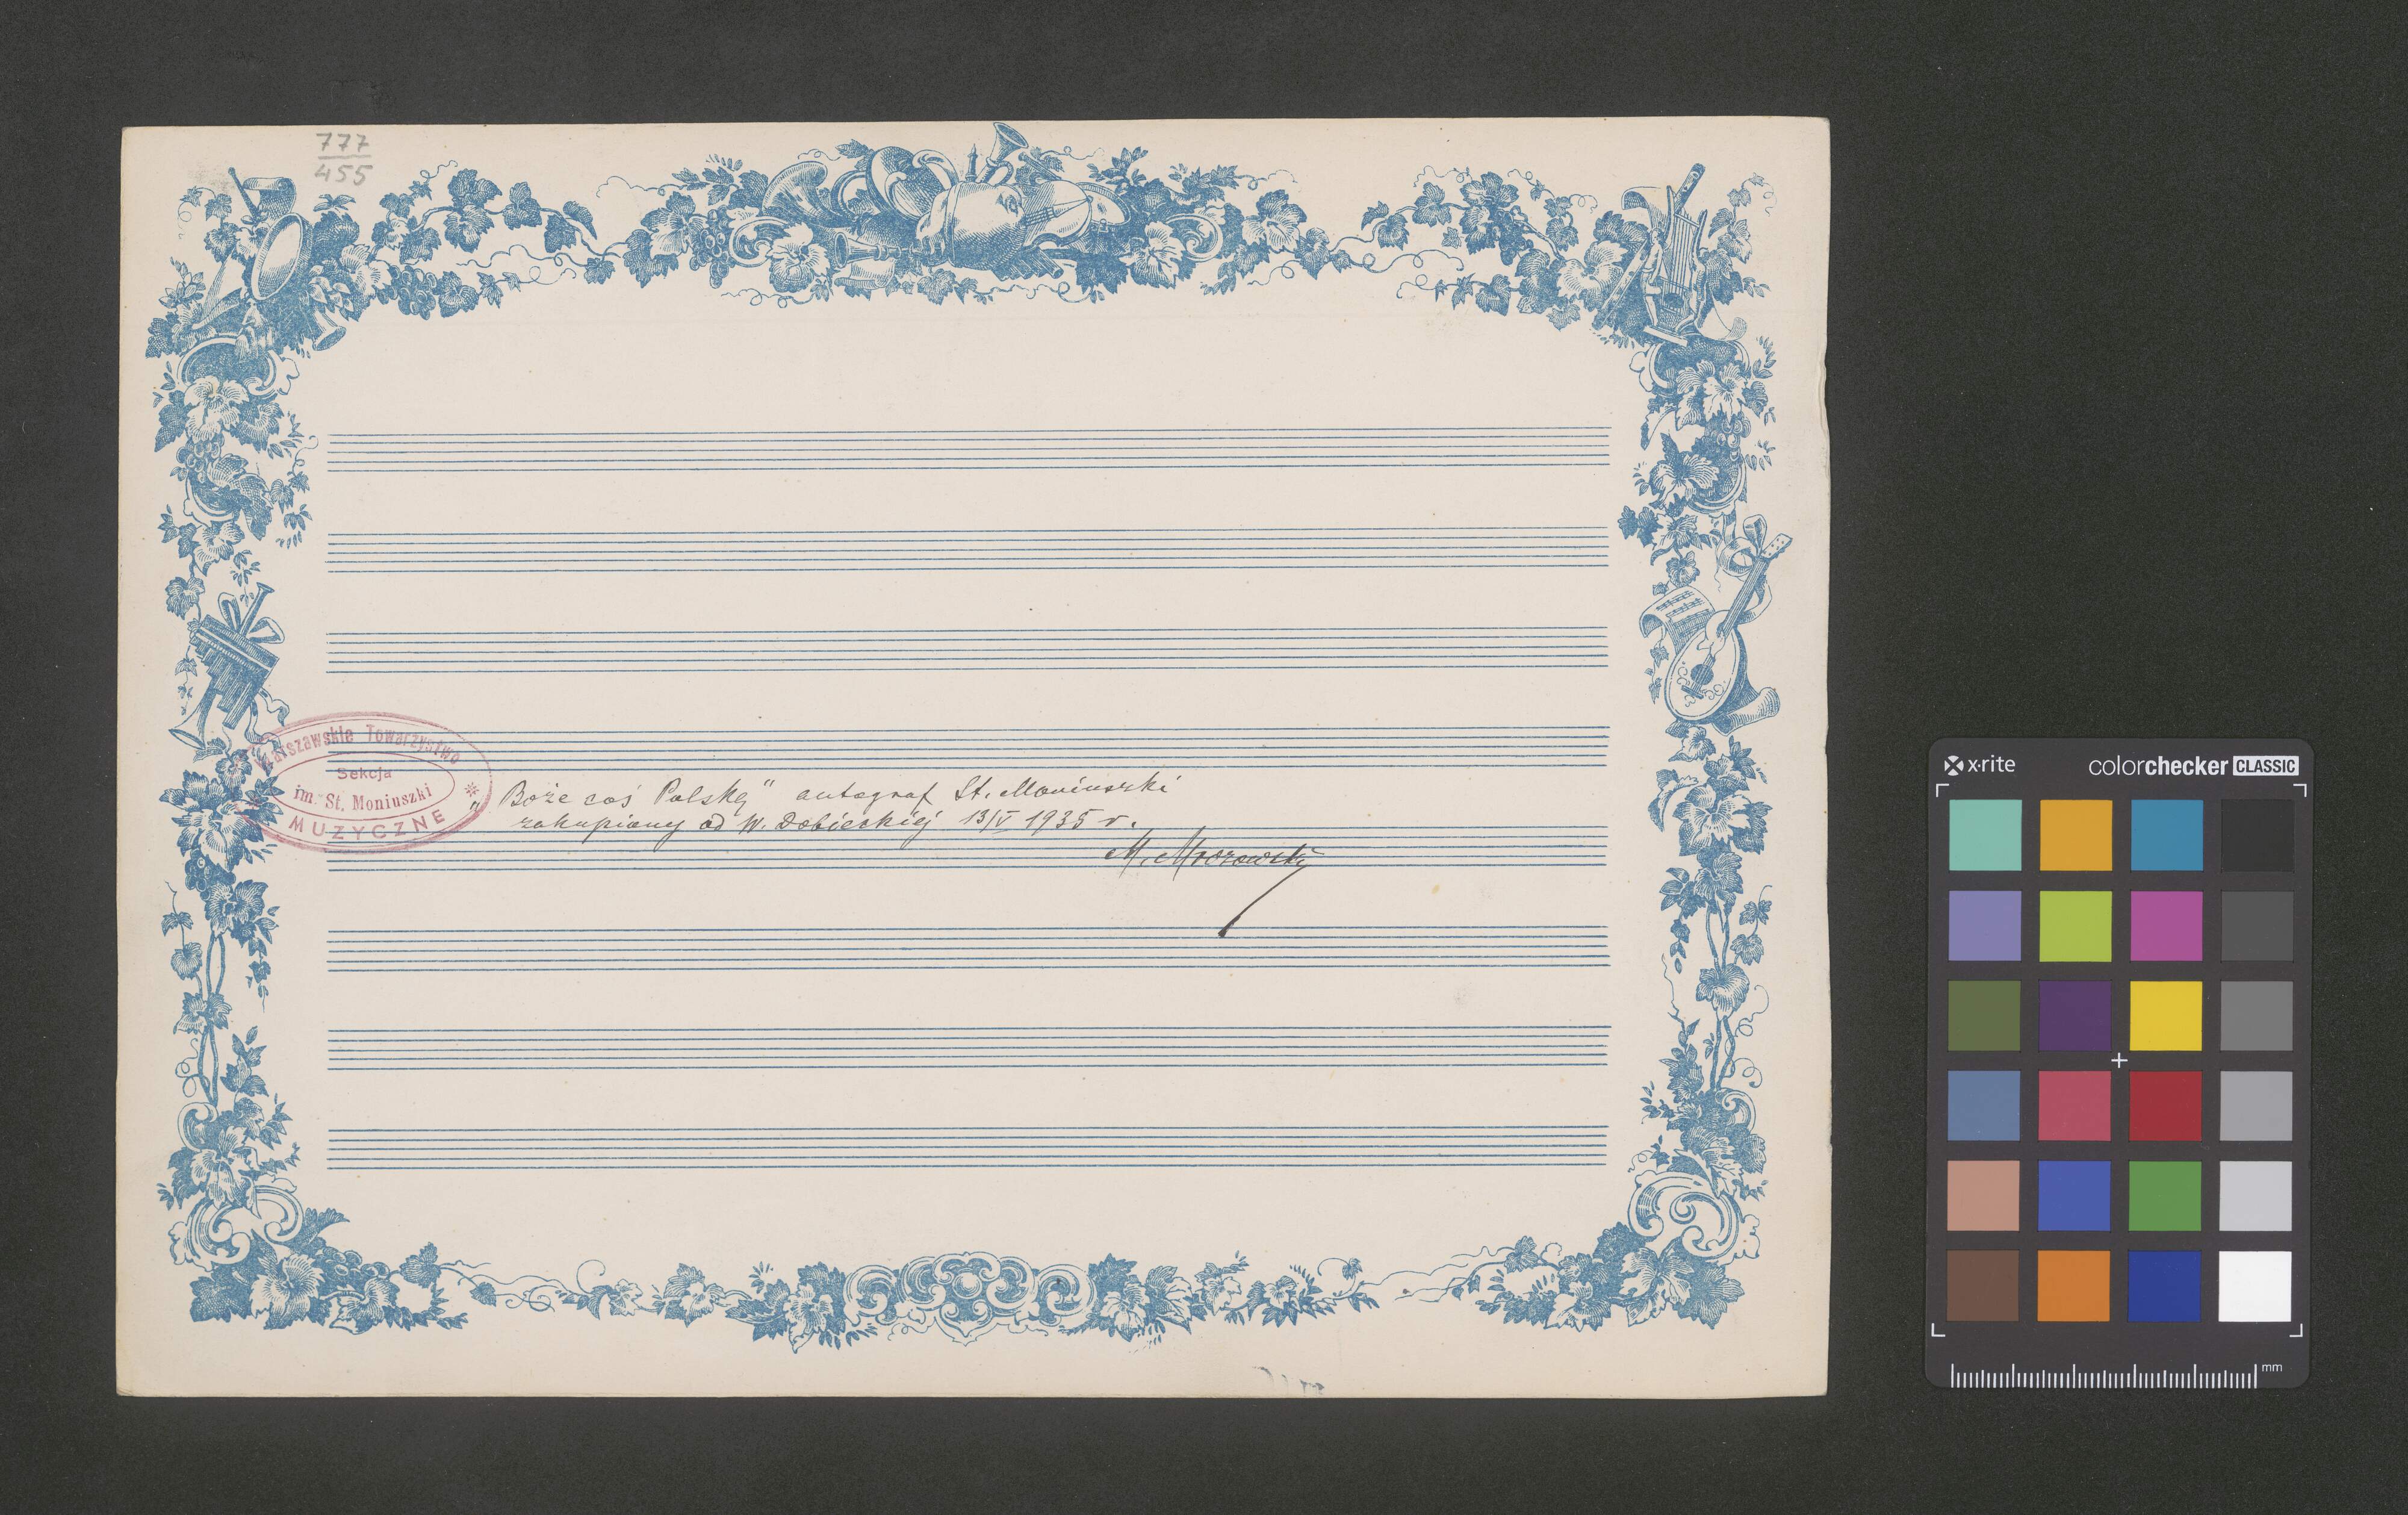 777
455
Warszawskie Towarzystwo
Sekcja
im. St. Moniuszki
MUZYCZNE
„Boże coś Polskę" autograf St. Moniuszki
zakupiony od W. Dobieckiéj 13/IV 1935 r.
M.
x·rite
colorchecker CLASSIC
mm